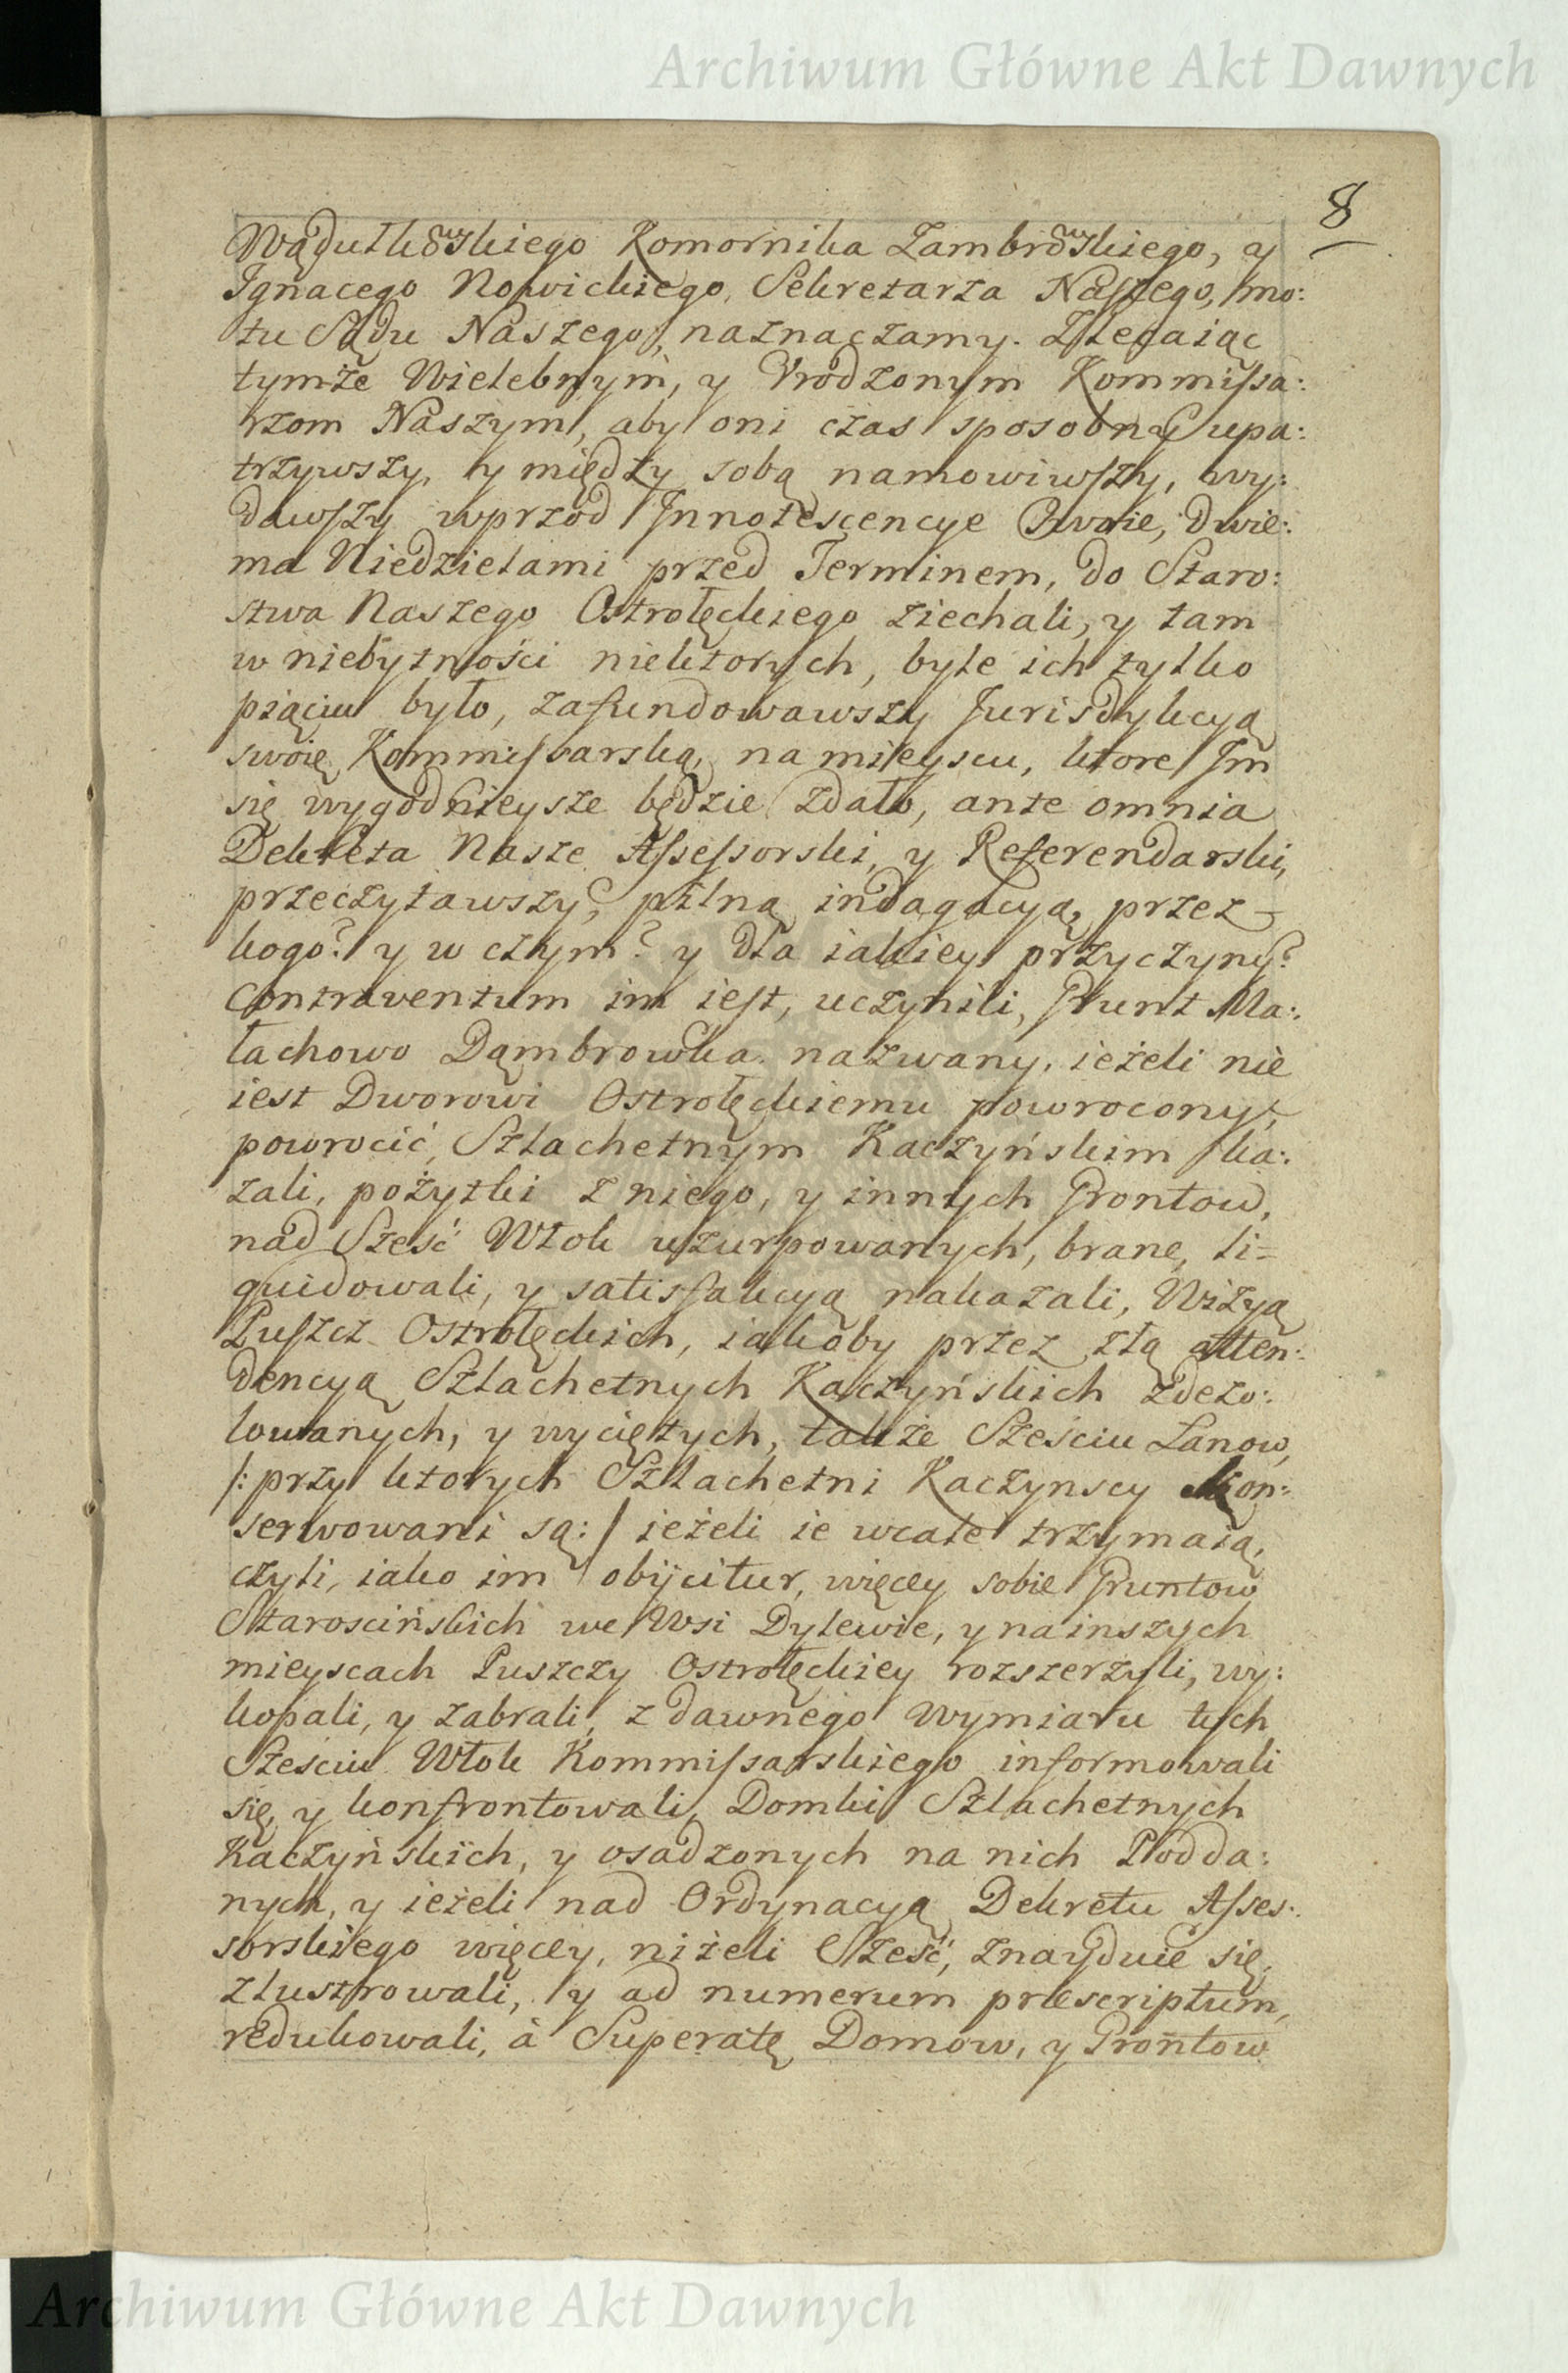 Archiwum Główne Akt Dawnych
8
Wądutkowskiego Komornika Zambrowskiego, y
Ignacego Nowickiego, Sekretarza Naszego, mo:
tu Sądu Naszego, naznaczamy. Zlecaiąc
tymże Wielebnym, y Vrodzonym Kommissa:
rzom Naszym, aby oni czas sposobny upa:
trzywszy, y między sobą namowiwszy, wy:
dawszy wprzod Innotescencye Swoie, dwie:
ma Niedzielami przed Terminem, do Staro:
stwa Naszego Ostrołęckiego ziechali, y tam
w niebytności niektorych, byle ich tylko
pięciu było, zafundowawszy Jurisdykcyą
swoię Kommissarską, na mieyscu, ktore Im
się wygodnieysze będzie zdało, ante omnia
Dekreta Nasze Assessorski, y Referendarski,
przeczytawszy, pilną indagacyą, przez
kogo? y w czym? y dla iakiey przyczyny?
Contraventum im iest, uczynili, Grunt Ma:
łachowo Dąmbrowka nazwany, ieżeli nie
iest Dworowi Ostrołęckiemu powrocony,
powrocić, Szlachetnym Kaczyńskim ka:
zali, pożytki z niego, y innych Grontow,
nad Sześć Włok uzurpowanych, brane, li=
quidowali, y satisfakcyą nakazali, Wizyą
Puszcz Ostrołęckich, iakoby przez złą atten:
dencyą Szlachetnych Kaczyńskich zdezo:
lowanych, y wyciętych, także Sześciu Łanow,
/: przy ktorych Szlachetni Kaczynscy kon:
serwowani są: / ieżeli ie wcale trzymaią,
czyli, iako im obijcitur, więcey sobie Gruntow
Staroscińskich we Wsi Dylewie, y na inszych
mieyscach Puszczy Ostrołęckiey rozszerzyli, wy:
kopali, y zabrali, z dawnego Wymiaru tych
Sześciu Włok Kommissarskiego informowali
się, y konfrontowali, Domki Szlachetnych
Kaczyńskich, y osadzonych na nich Podda:
nych, y ieżeli nad Ordynacyą Dekretu Asses:
sorskiego więcey, niżeli Sześć, znayduie się,
zlustrowali, y ad numerum præscriptum,
redukowali, à Superatę Domow, y Grontow
Archiwum Główne Akt Dawnych